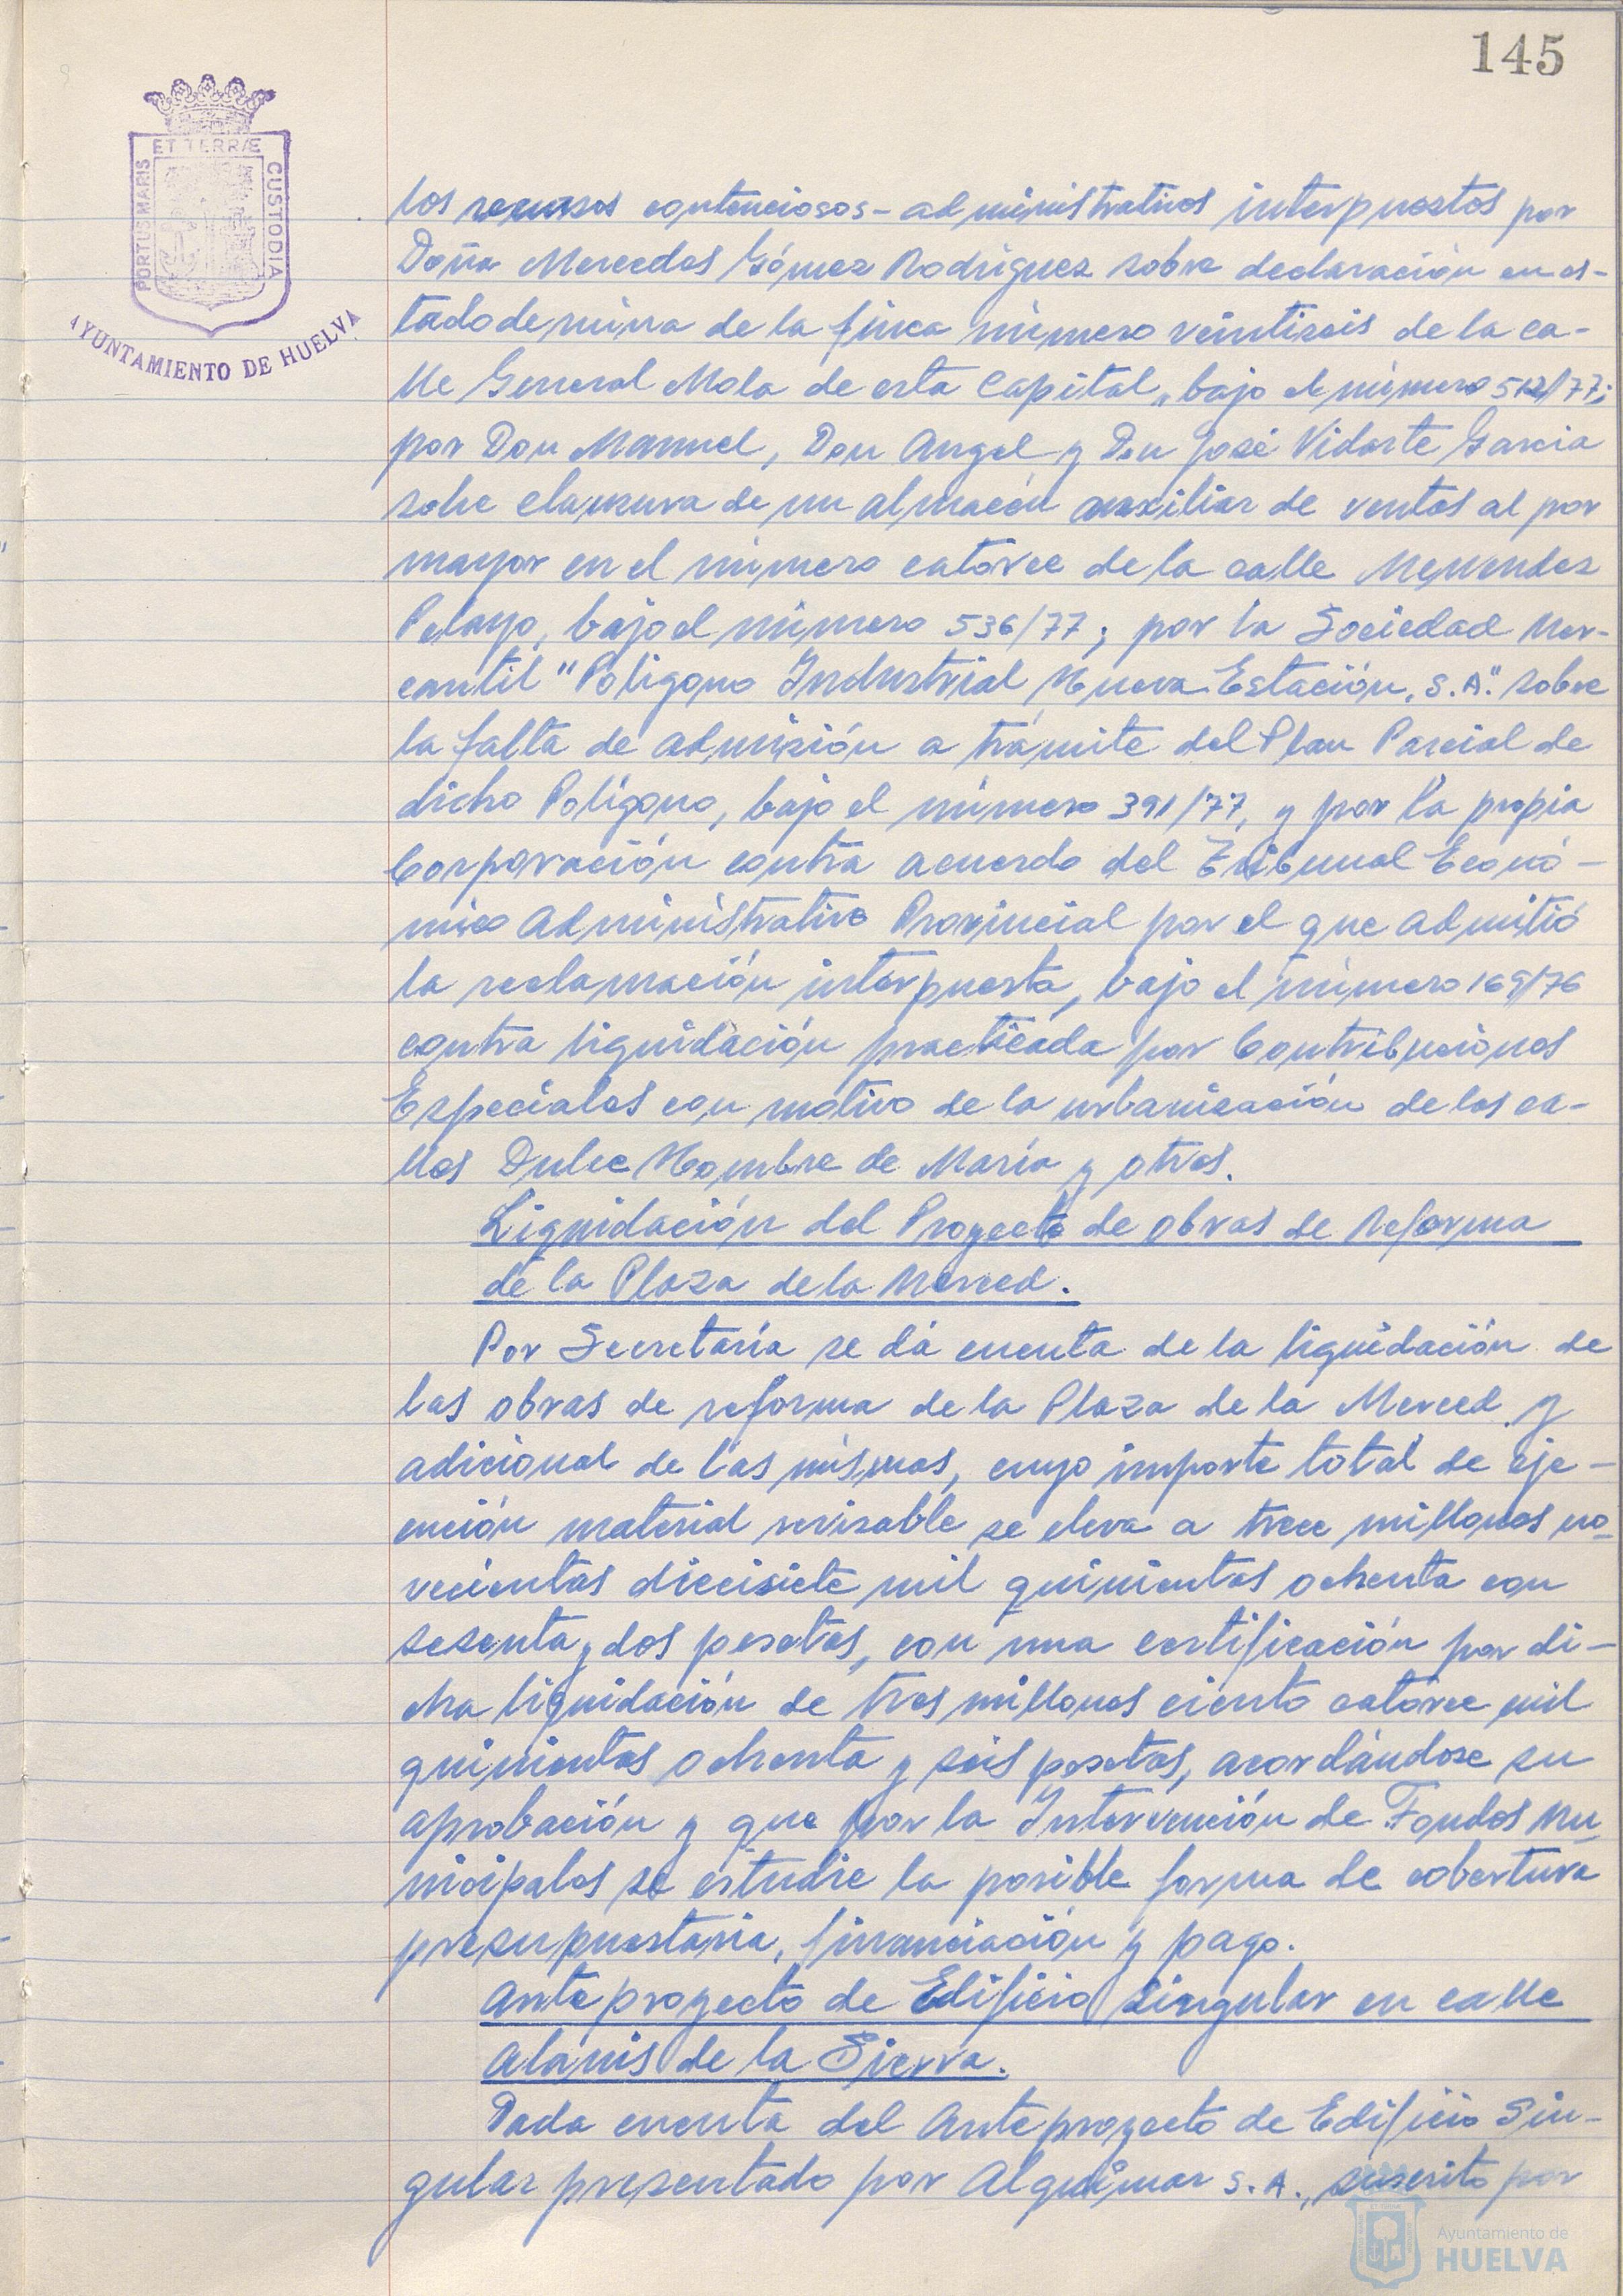 145
ET TERRÆ
PORTUS MARIS
CUSTODIA
AYUNTAMIENTO DE HUELVA
los recursos contenciosos-administrativos interpuestos por
Doña Mercedes Gómez Rodríguez sobre declaración en es-
tado de ruina de la finca número veintiseis de la ca-
lle General Mola de esta Capital, bajo el número 512/77;
por Don Manuel, Don Angel y Don José Vidarte Garcia
sobre clausura de un almacén auxiliar de ventas al por
mayor en el número catorce de la calle Menendez
Pelayo, bajo el número 536/77; por la Sociedad Mer-
cantil "Poligono Industrial Nueva Estación, S.A." sobre
la falta de admisión a trámite del Plan Parcial de
dicho Polígono, bajo el número 391/77, y por la propia
Corporación contra acuerdo del Tribunal Econó-
mico Administrativo Provincial por el que admitió
la reclamación interpuesta, bajo el número 169/76
contra liquidación practicada por Contribuciones
Especiales con motivo de la urbanización de las ca-
lles Dulce Nombre de María y otras.
Liquidación del Proyecto de obras de Reforma
de la Plaza de la Merced.
Por Secretaría se dá cuenta de la liquidación de
las obras de reforma de la Plaza de la Merced y
adicional de las mismas, cuyo importe total de eje-
cución material revisable se eleva a trece millones no-
vecientas diecisiete mil quinientas ochenta con
sesenta y dos pesetas, con una certificación por di-
cha liquidación de tres millones ciento catorce mil
quinientas ochenta y seis pesetas, acordándose su
aprobación y que por la Intervención de Fondos Mu-
nicipales se estudie la posible forma de cobertura
presupuestaria, financiación y pago.
Anteproyecto de Edificio Singular en calle
Alanis de la Sierra.
Dada cuenta del Anteproyecto de Edificio Sin-
gular presentado por Alquimar S.A., suscrito por
Ayuntamiento de
HUELVA